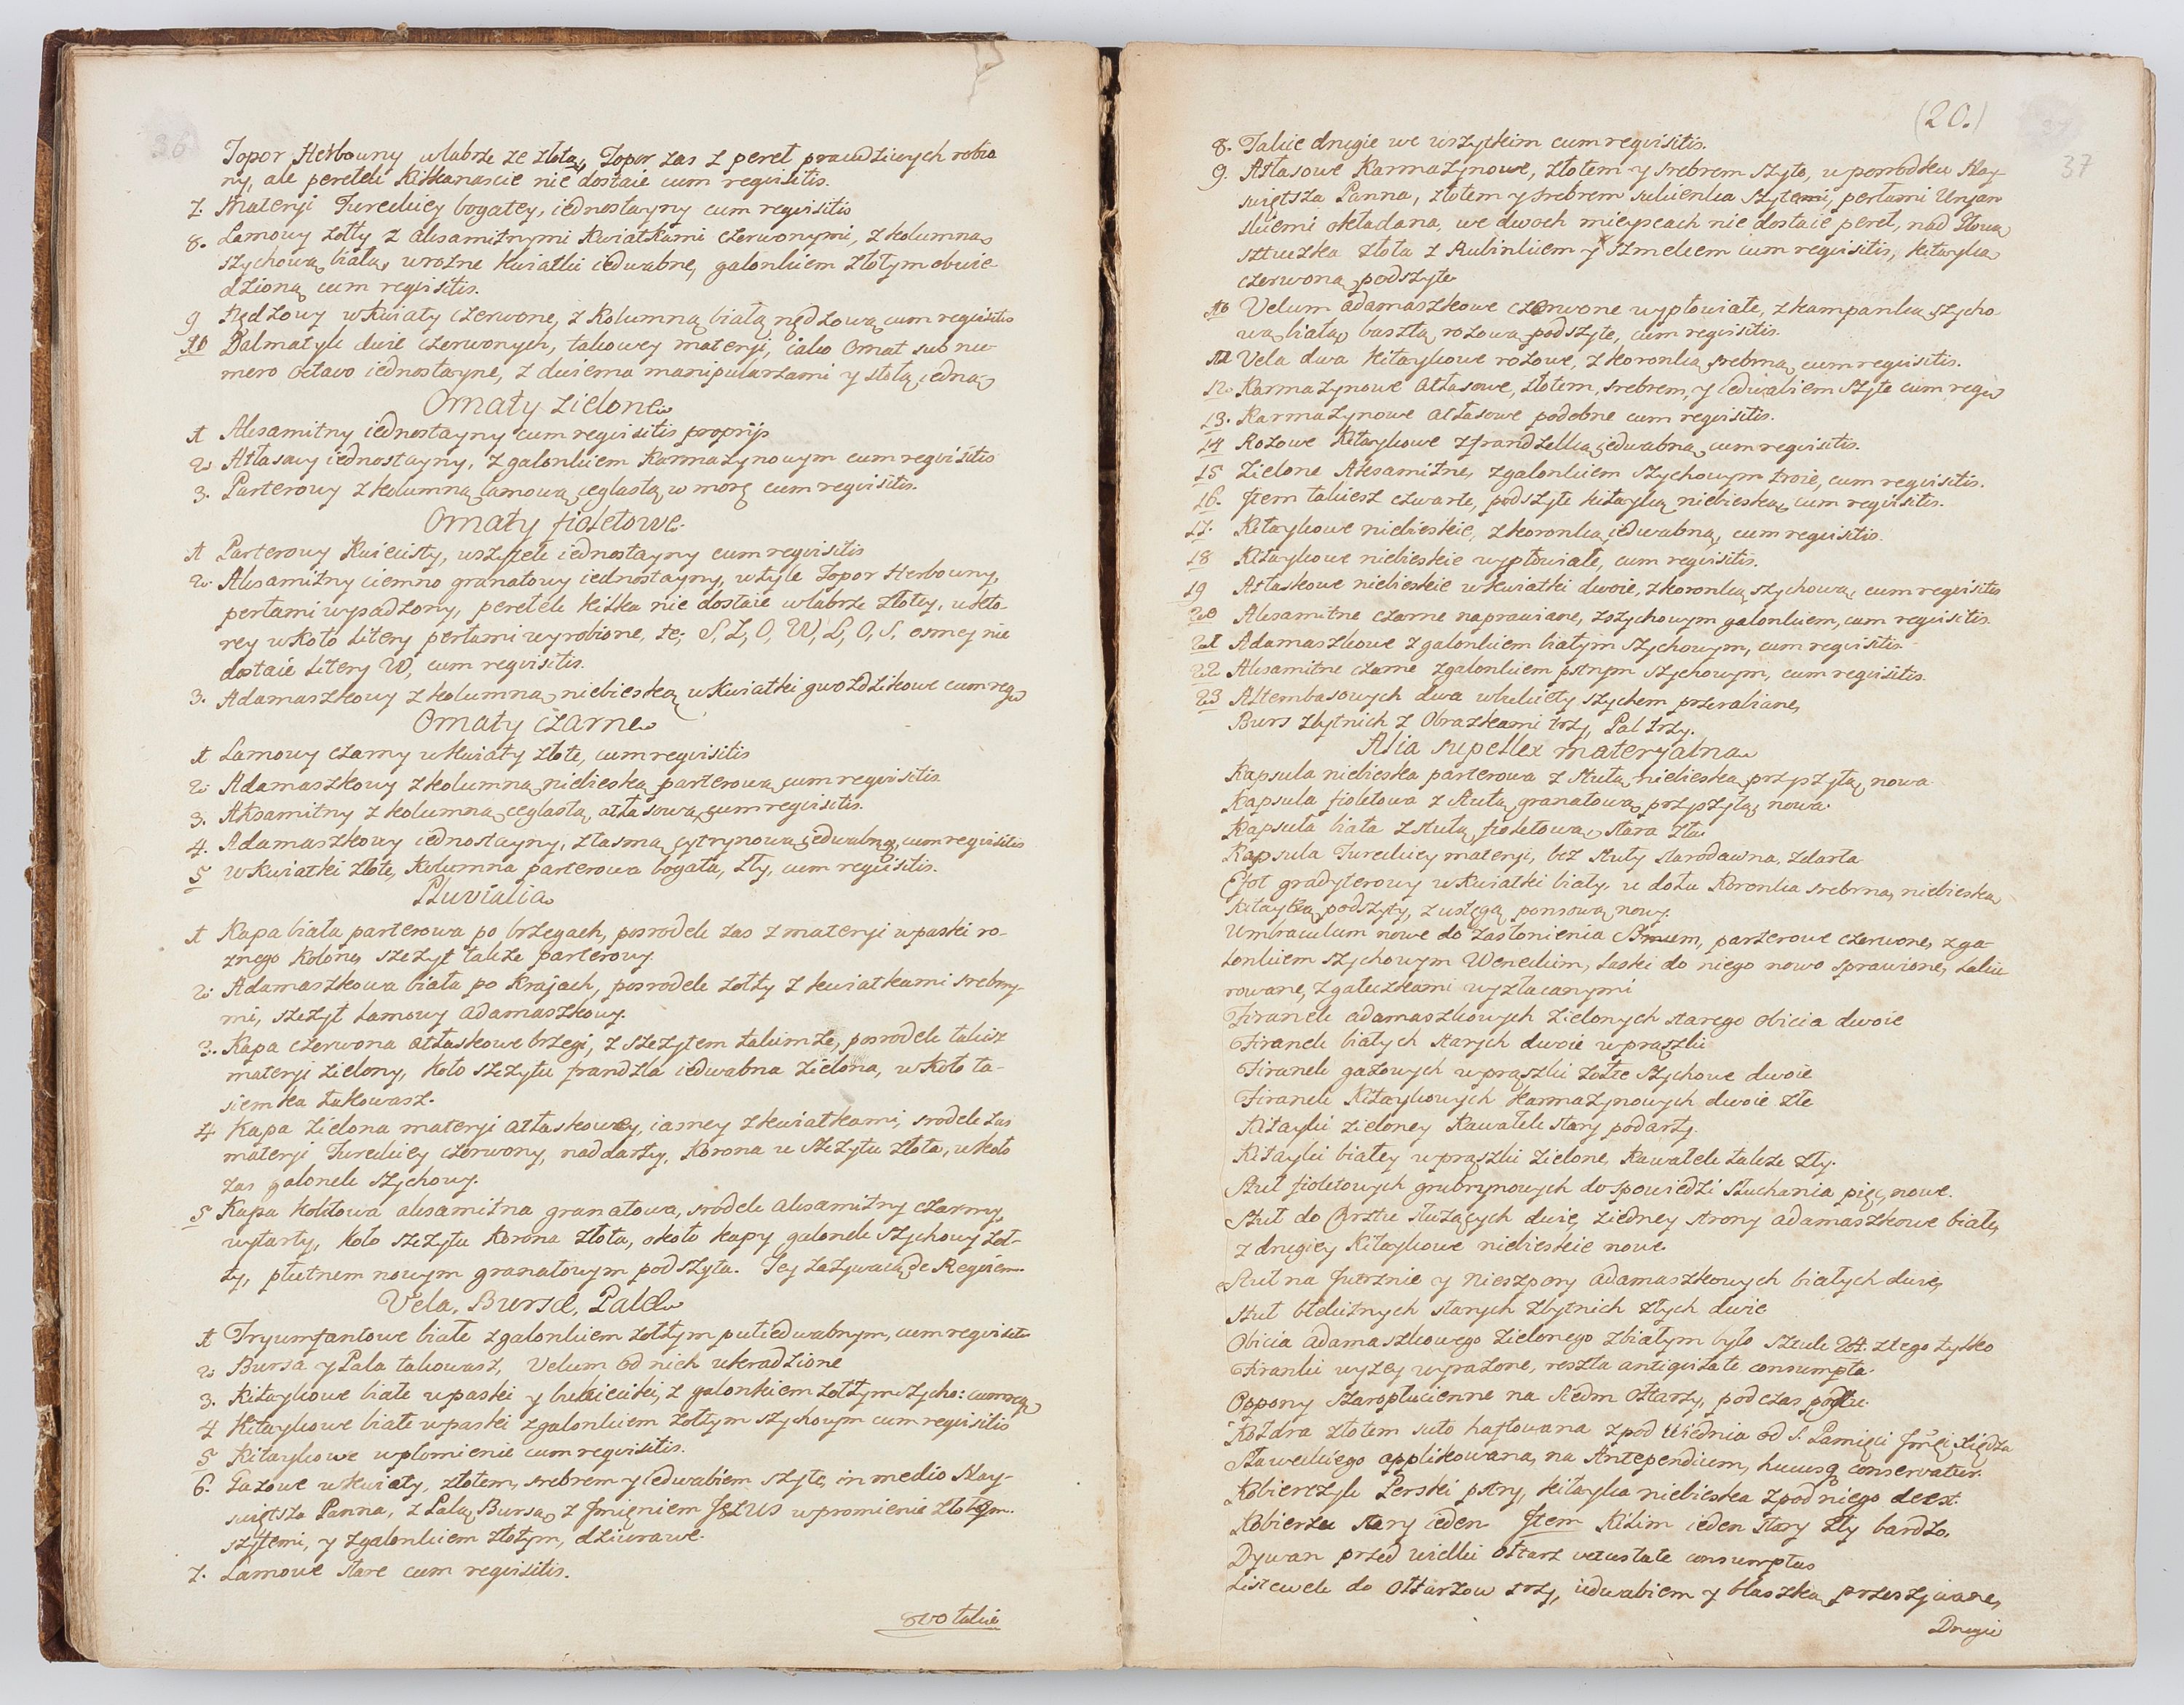 36
Topor Herbowny wlabrze ze złota, Topor zas z pereł prawdziwych robio
ny, ale perełek kilkanascie nie dostaie cum requisitis.
7. Materyi Tureckiey bogatey, iednostayny cum requisitis
8. Lamowy zołty z aksamitnymi kwiatkami czerwonymi, z kolumną
szychową białą, w rozne kwiatki iedwabne, galonkiem złotym obwie
dzioną cum requisitis.
9 w kwiaty czerwone, z kolumną białą cum requisitis
10 Dalmatyk dwie czerwonych, takowey materyi, iako Ornat sub nu-
mero octavo iednostayne, z dwiema manipularzami y stołą iedną
Ornaty zielone
1 Aksamitny iednostayny cum requisitis proprijs
2 Atłasowy iednostayny, z galonkiem karmazynowym cum requisitis
3. Parterowy z kolumną lamową ceglastą w morę cum requisitis.
Ornaty fioletowe.
1 Parterowy kwiecisty, wszystek iednostayny cum requisitis
2. Aksamitny ciemno granatowy iednostayny, w tyle Topor Herbowny,
perłami wysadzony, perełek kilka nie dostaie w labrze złotey, w kto-
rey wkoło litery perłami wyrobione, te; S, Z, O, W, L, O, S, osmey nie
dostaie litery W, cum requisitis.
3. Adamaszkowy z kolumną niebieską w kwiatki gwozdzikowe cum req
Ornaty czarne
1 Lamowy czarny w kwiaty złote, cum requisitis
2. Adamaszkowy z kolumną niebieską parterową cum requisitis
3. Aksamitny z kolumną ceglastą, atłasową cum requisitis.
4. Adamaszkowy iednostayny, z tasmą cytrynową iedwabną, cum requisitis
5 w kwiatki złote, kolumna parterowa bogata, zły, cum requisitis.
Pluvialia
1 Kapa biała parterowa po brzegach, posrodek zas z materyi w paski ro-
znego koloru, szczyt takze parterowy.
2. Adamaszkowa biała po krajach, posrodek zołty z kwiatkami srebrny-
mi, szczyt lamowy adamaszkowy.
3. Kapa czerwona atłaskowe brzegi, z szczytem takimze, posrodek takisz
materyi zielony, koło szczytu frandzla iedwabna zielona, w koło ta-
siemka takowasz.
4 Kapa zielona materyi atłaskowey, iasney z kwiatkami, srodek zas
materyi Tureckiey czerwony, naddarty, korona u szczytu złota, wkoło
zas galonek szychowy.
5 Kapa aksamitna granatowa, srodek aksamitny czarny,
wytarty, koło szczytu korona złota, około kapy galonek szychowy zoł-
ty, płutnem nowym granatowym podszyta. Tey zazywaią de Requiem.
Vela, Bursæ, Palæ
1 Tryumfantowe białe z galonkiem zołtym pułiedwabnym, cum requisitis
2 Bursa y Pala takowasz, Velum od nich ukradzione
3. Kitaykowe białe w paski y bukieciki, z galonkiem zołtym szycho: cum req
4 Kitaykowe białe w paski z galonkiem zołtym szychowym cum requisitis
5 Kitaykowe w płomienie cum requisitis.
6. Gazowe w kwiaty, złotem, srebrem y iedwabiem szyte, in medio Nay-
swiętsza Panna, z Palą, Bursą z Jmieniem JEZUS w promienie złotem
szytemi, y z galonkiem złotym, dziurawe.
7. Lamowe stare cum requisitis.
8vo takie
(20.)
37
8. Takie drugie we wszytkim cum requisitis.
9. Atłasowe karmazynowe, złotem y srebrem szyte, w posrodku Nay-
swiętsza Panna, złotem y srebrem sukienka szytemi, perłami Uryan
skiemi okładana, we dwoch mieyscach nie dostaie pereł, nad głową
sztuczka złota z Rubinkiem y Szmelcem cum requisitis, kitayką
czerwoną podszyte
10 Velum adamaszkowe czerwone wypłowiałe, z kampanką szycho
wą białą, basztą rozową podszyte, cum requisitis.
11 Vela dwa kitaykowe rozowe, z koronką srebrną, cum requisitis.
12. Karmazynowe atłasowe, złotem, srebrem, y iedwabiem szyte cum requ
13. Karmazynowe atłasowe podobne cum requisitis.
14 Rozowe kitaykowe z frandzelką iedwabną, cum requisitis.
15 Zielone Aksamitne, z galonkiem szychowym troie, cum requisitis.
16. Item takiesz czwarte, podszyte kitayką niebieską, cum requisitis.
17. Kitaykowe niebieskie, z koronką iedwabną, cum requisitis.
18 Kitaykowe niebieskie wypłowiałe, cum requisitis.
19 Atłaskowe niebieskie w kwiatki dwoie, z koronką szychową, cum requisitis
20 Aksamitne czarne naprawiane, z szychowym galonkiem, cum requisitis.
21 Adamaszkowe z galonkiem białym szychowym, cum requisitis.
22 Aksamitne czarne z galonkiem pstrym szychowym, cum requisitis.
23 Altembasowych dwa w bukiety szychem przerabiane,
Burs zbytnich z Obrazkami trzy, Pal trzy.
Alia supellex materyalna
Kapsula niebieska parterowa z stułą niebieską przyszytą, nowa
Kapsula fioletowa z stułą granatową przyszytą, nowa.
Kapsuła biała z stułą fioletową, stara zła.
Kapsula Tureckiey materyi, bez stuły starodawna, zdarta
Efot gradyterowy w kwiatki biały, u dołu koronka srebrna, niebieską
kitayką podszyty, z wstęgą ponsową nowy.
Umbraculum nowe do zasłonienia Ssmum, parterowe czerwone, z ga-
lonkiem szychowym Weneckim, Laski do niego nowo sprawione, lakie
rowane, z gałeczkami wyzłacanymi
Firanek adamaszkowych zielonych starego obicia dwoie
Firanek białych starych dwoie w prąszki
Firanek gazowych w prąszki zołte szychowe dwoie
Firanek Kitaykowych karmazynowych dwoie złe
Kitayki zieloney kawałek stary podarty.
Kitayki białey w prąszki zielone, kawałek takze zły.
Stuł fioletowych grubrynowych do spowiedzi słuchania pięć, nowe.
Stuł do Chrztu słuzących dwie, z iedney strony adamaszkowe białe,
z drugiey kitaykowe niebieskie nowe.
Stuł na Jutrznie y Nieszpory adamaszkowych białych dwie,
stuł błekitnych starych zbytnich złych dwie
Obicia adamaszkowego zielonego z białym było sztuk 24. z tego tylko
Firanki wyzey wyrazone, reszta antiquitate consumpta.
Oppony staropłucienne na siedm ołtarzy, podczas postu.
Kołdra złotem suto haftowana z pod Wiednia od S. Pamięci Jmci Xiędza
applikowana, na Antependium, hucusq conservatur.
Kobierczyk Perski pstry, kitayka niebieska z pod niego deest.
Kobierzec stary ieden Item Kilim ieden stary zły bardzo.
Dywan przed wielki ołtarz vetustate consumptus
Listewek do ołtarzow trzy, iedwabiem y blaszką przeszywane,
Drugie